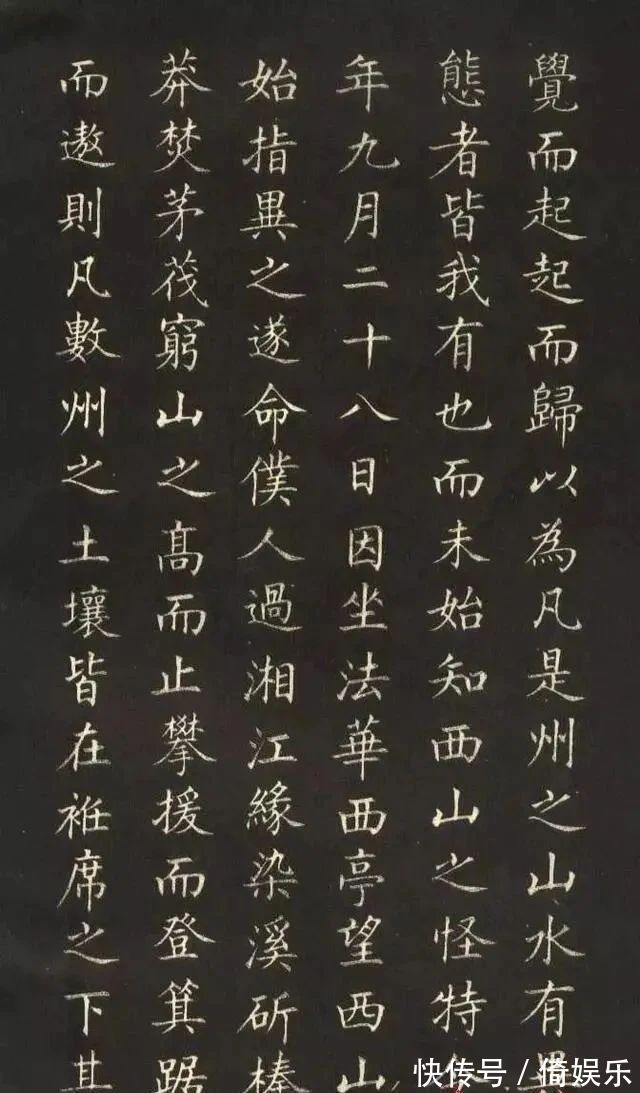 覺而起起而歸以為凡是州之山水有異
態者皆我有也而未始知西山之怪特
年九月二十八日因坐法華西亭望西山
始指異之遂命僕人過湘江緣染溪斫榛
莽焚茅茷窮山之高而止攀援而登箕踞
而遨則凡數州之土壤皆在袵席之下其
快传号/倚娱乐